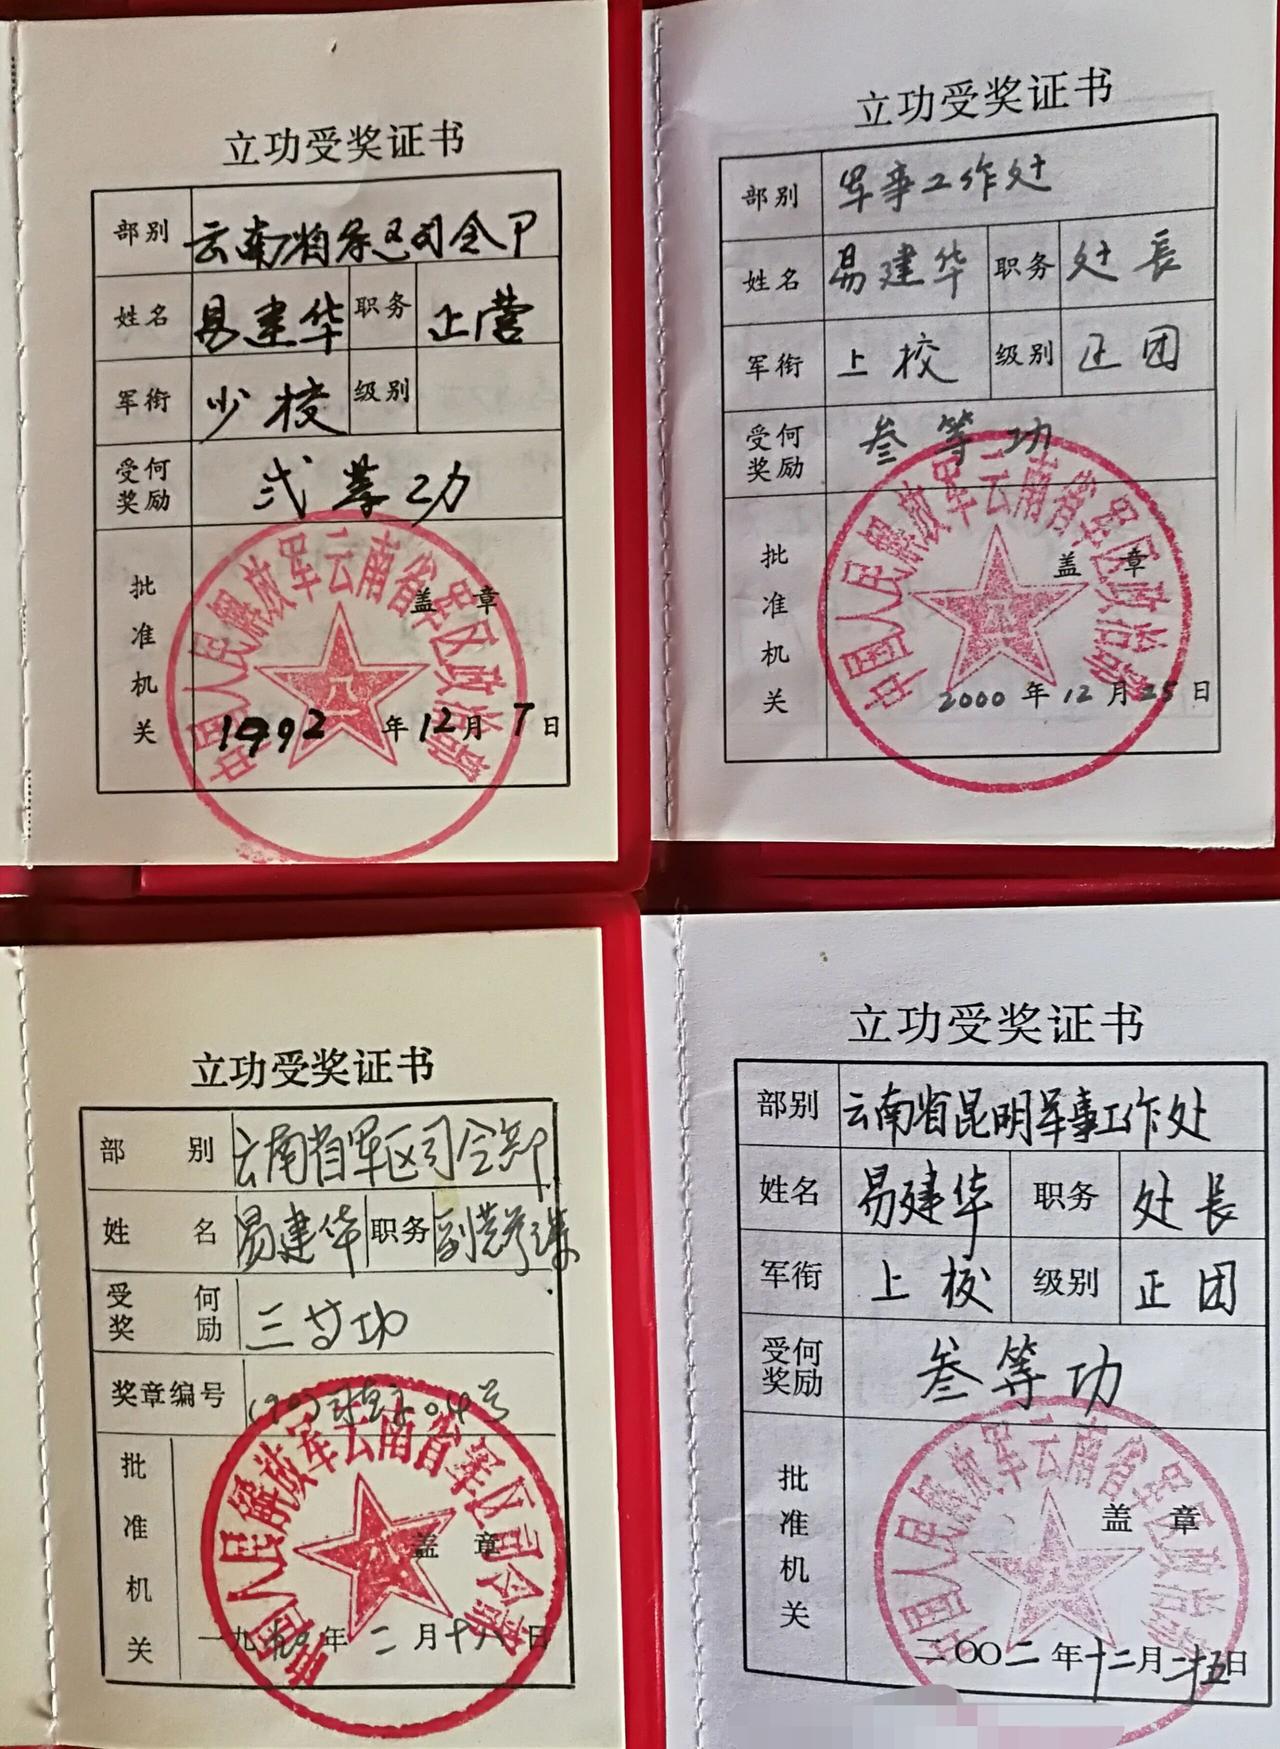 立功受奖证书
部别 云南省军区司令卩
姓名 易建华 职务 正营
军衔 少校 级别
受何奖励 弍等功
批准机关
盖章
中国人民解放军云南省军区政治部
1992年12月7日
立功受奖证书
部别 军事工作处
姓名 易建华 职务 处长
军衔 上校 级别 正团
受何奖励 叁等功
批准机关
盖章
中国人民解放军云南省军区政治部
2000年12月25日
立功受奖证书
部别 云南省军区司令部
姓名 易建华 职务 副营参谋
受何奖励 三等功
奖章编号 号
批准机关
盖章
中国人民解放军云南省军区司令部
一九 年二月十八日
立功受奖证书
部别 云南省昆明军事工作处
姓名 易建华 职务 处长
军衔 上校 级别 正团
受何奖励 叁等功
批准机关
盖章
中国人民解放军云南省军区政治部
二00二年十二月二十五日